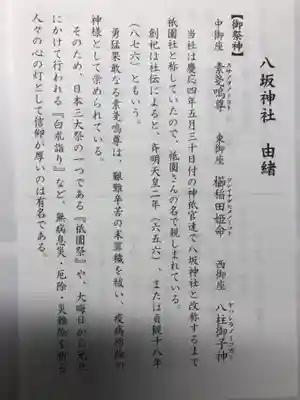 八坂神社 由緒
【御祭神】
中御座 素戔嗚尊 東御座 櫛稲田姫命 西御座 八柱御子神
当社は慶応四年五月三十日付の神祇官達で八坂神社と改称するまで
祇園社と称していたので、祇園さんの名で親しまれている。
創祀は社伝によると、斉明天皇二年(六五六)、または貞観十八年
(八七六)ともいう。
勇猛果敢なる素戔嗚尊は、艱難辛苦の末罪穢を祓い、疫病消除の
神様として崇められている。
そのため、日本三大祭の一つである『祇園祭』や、大晦日から元旦
にかけて行われる『白朮詣り』など、無病息災・厄除・災難除を祈る
人々の心の灯として信仰が厚いのは有名である。